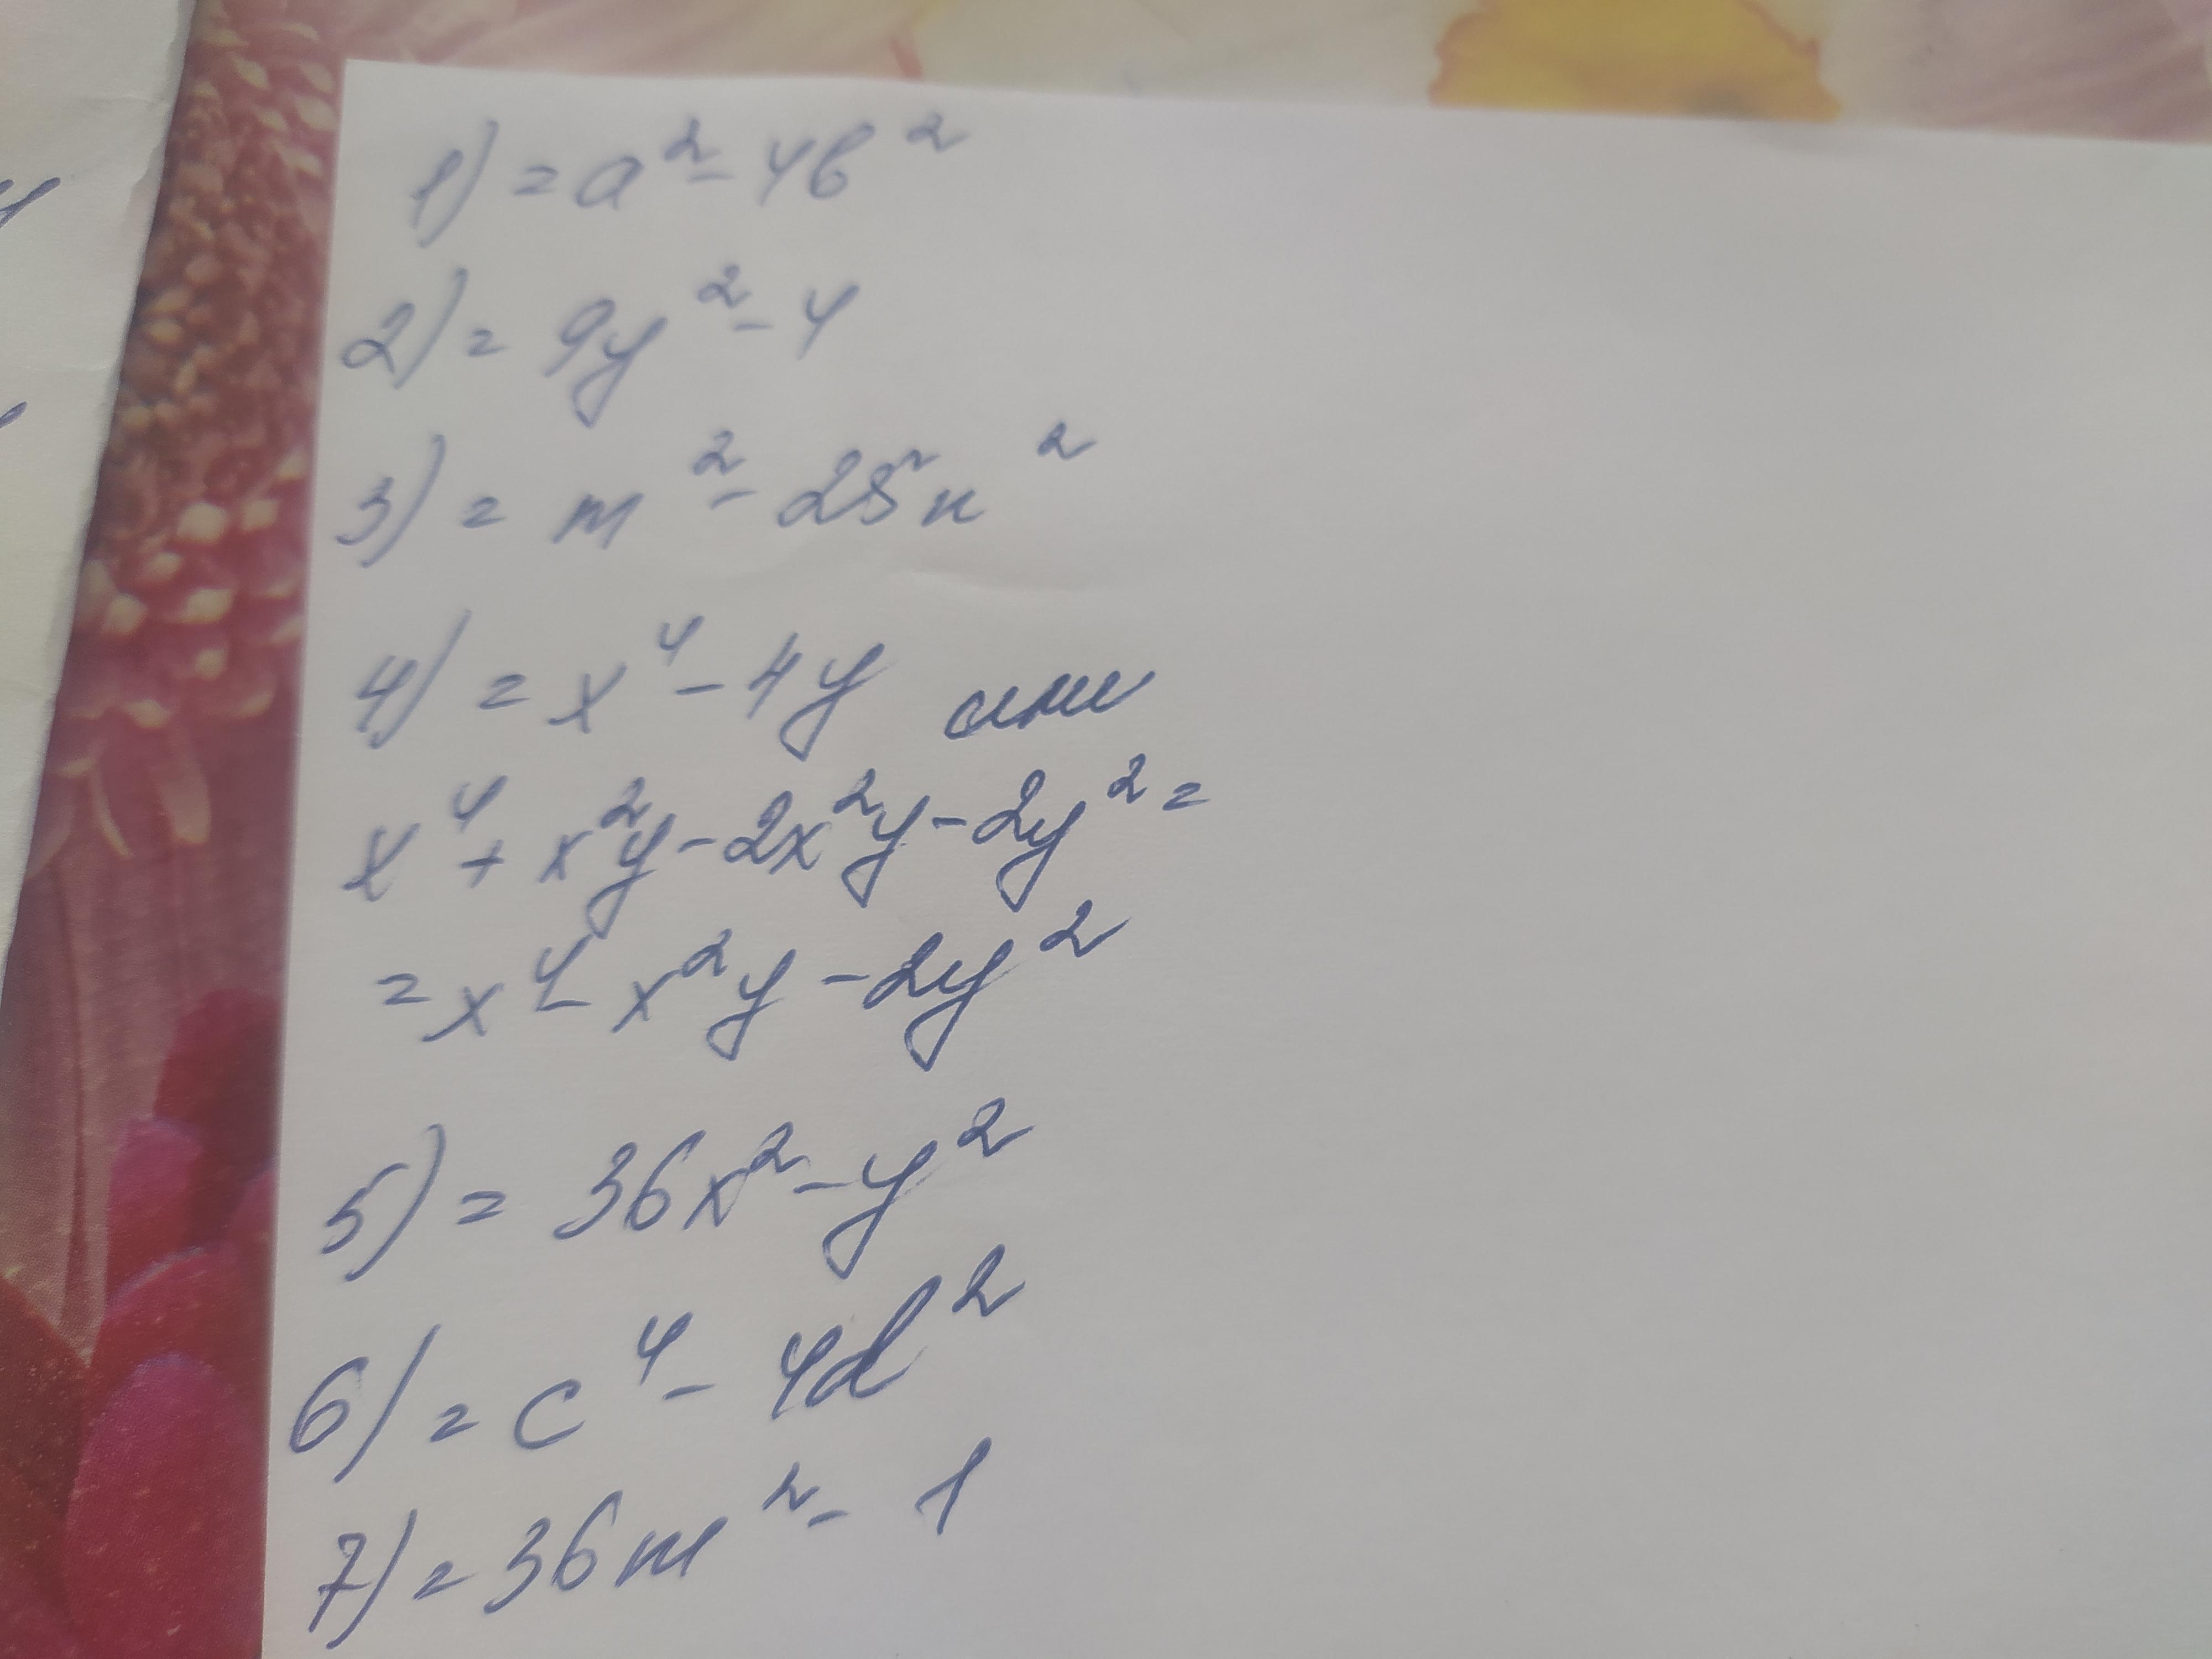 1) = a² - 4b²
2) = 9y² - 4
3) = m² - 25n²
4) = x⁴ - 4y или
x⁴ + x²y - 2x²y - 2y² =
= x⁴ - x²y - 2y²
5) = 36x² - y²
6) = c⁴ - 4d²
7) = 36m² - 1